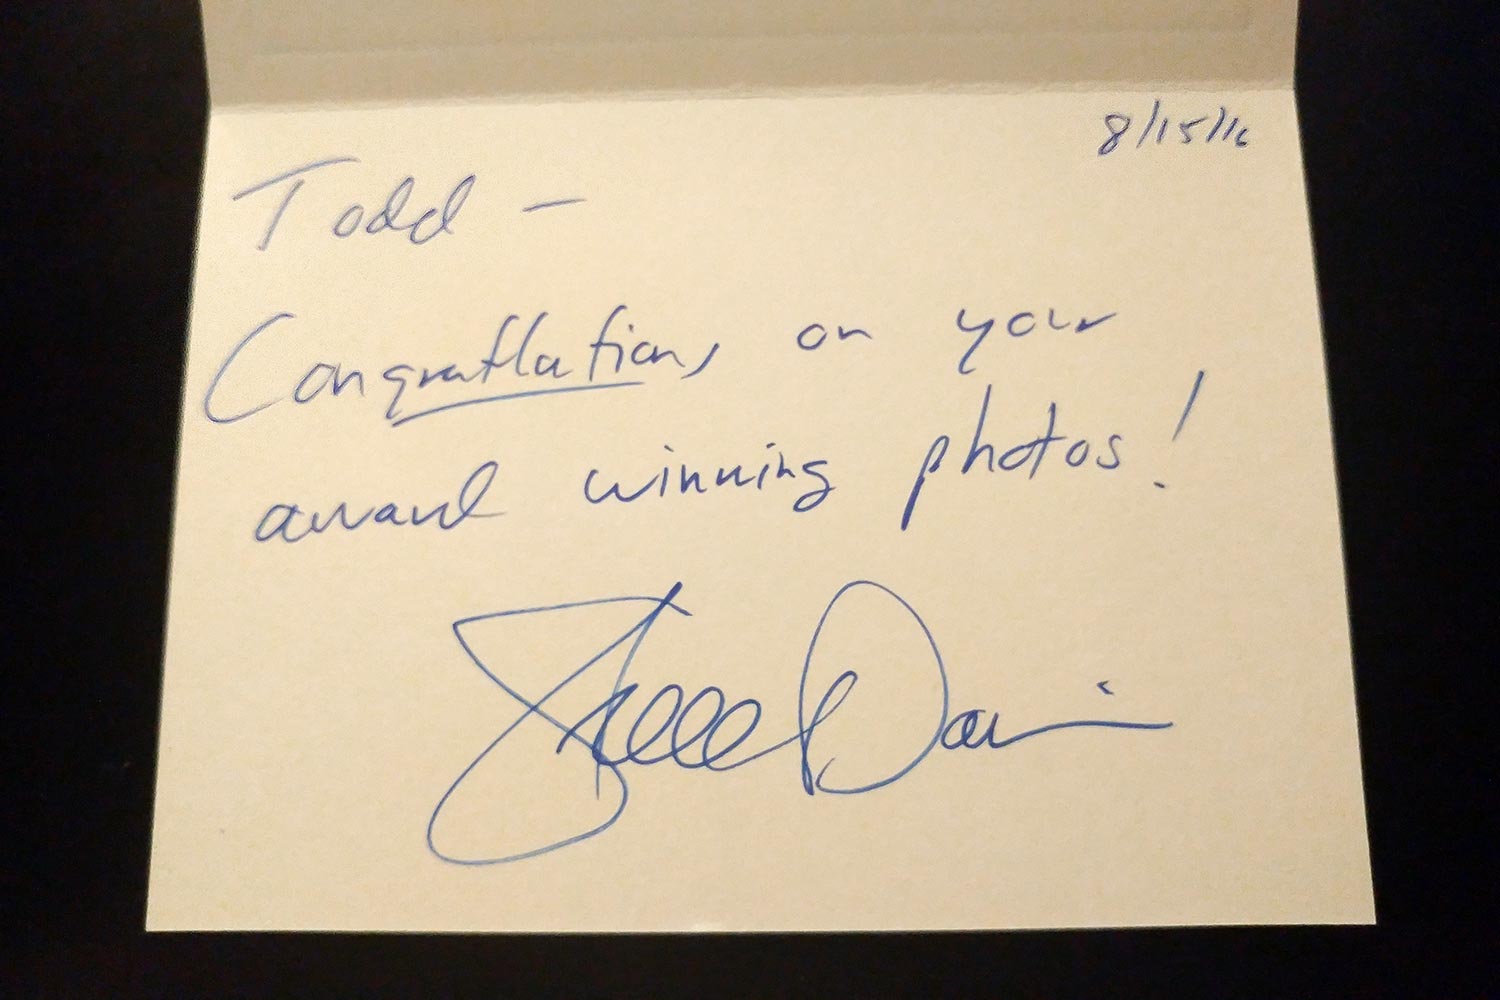 8/15/16
Todd –
Congratlations on your
award winning photos!